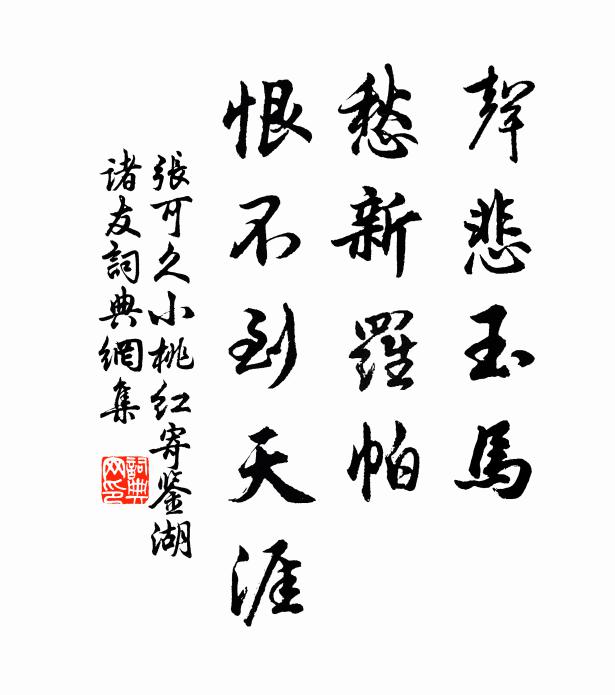 聲悲玉馬
愁新羅帕
恨不到天涯
張可久小桃紅寄鉴湖
诸友詞典網集
詞典
网印